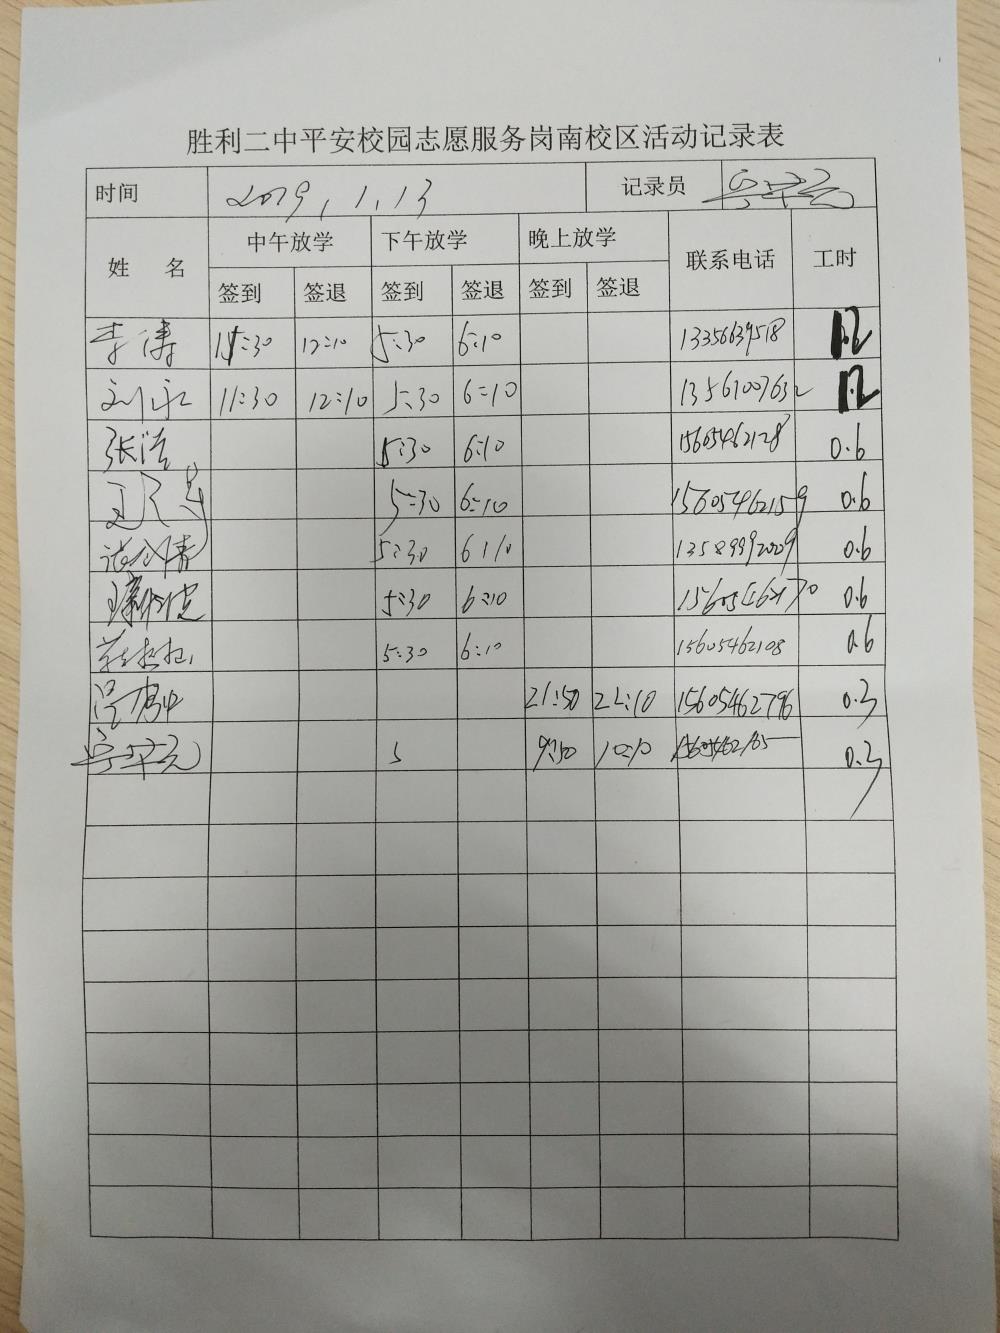 胜利二中平安校园志愿服务岗南校区活动记录表
时间 2019.1.13 记录员
姓 名 中午放学 下午放学 晚上放学 联系电话 工时
签到 签退 签到 签退 签到 签退
李涛 11:30 12:10 5:30 6:10 13356639518 1.2
刘永 11:30 12:10 5:30 6:10 13561007632 1.2
张浩 5:30 6:10 15605462128 0.6
5:30 6:10 15605462159 0.6
5:30 6:10 13589992009 0.6
5:30 6:10 15605462170 0.6
5:30 6:10 15605462108 0.6
21:50 22:10 15605462796 0.3
5 9:50 10:10 15605462165 0.3